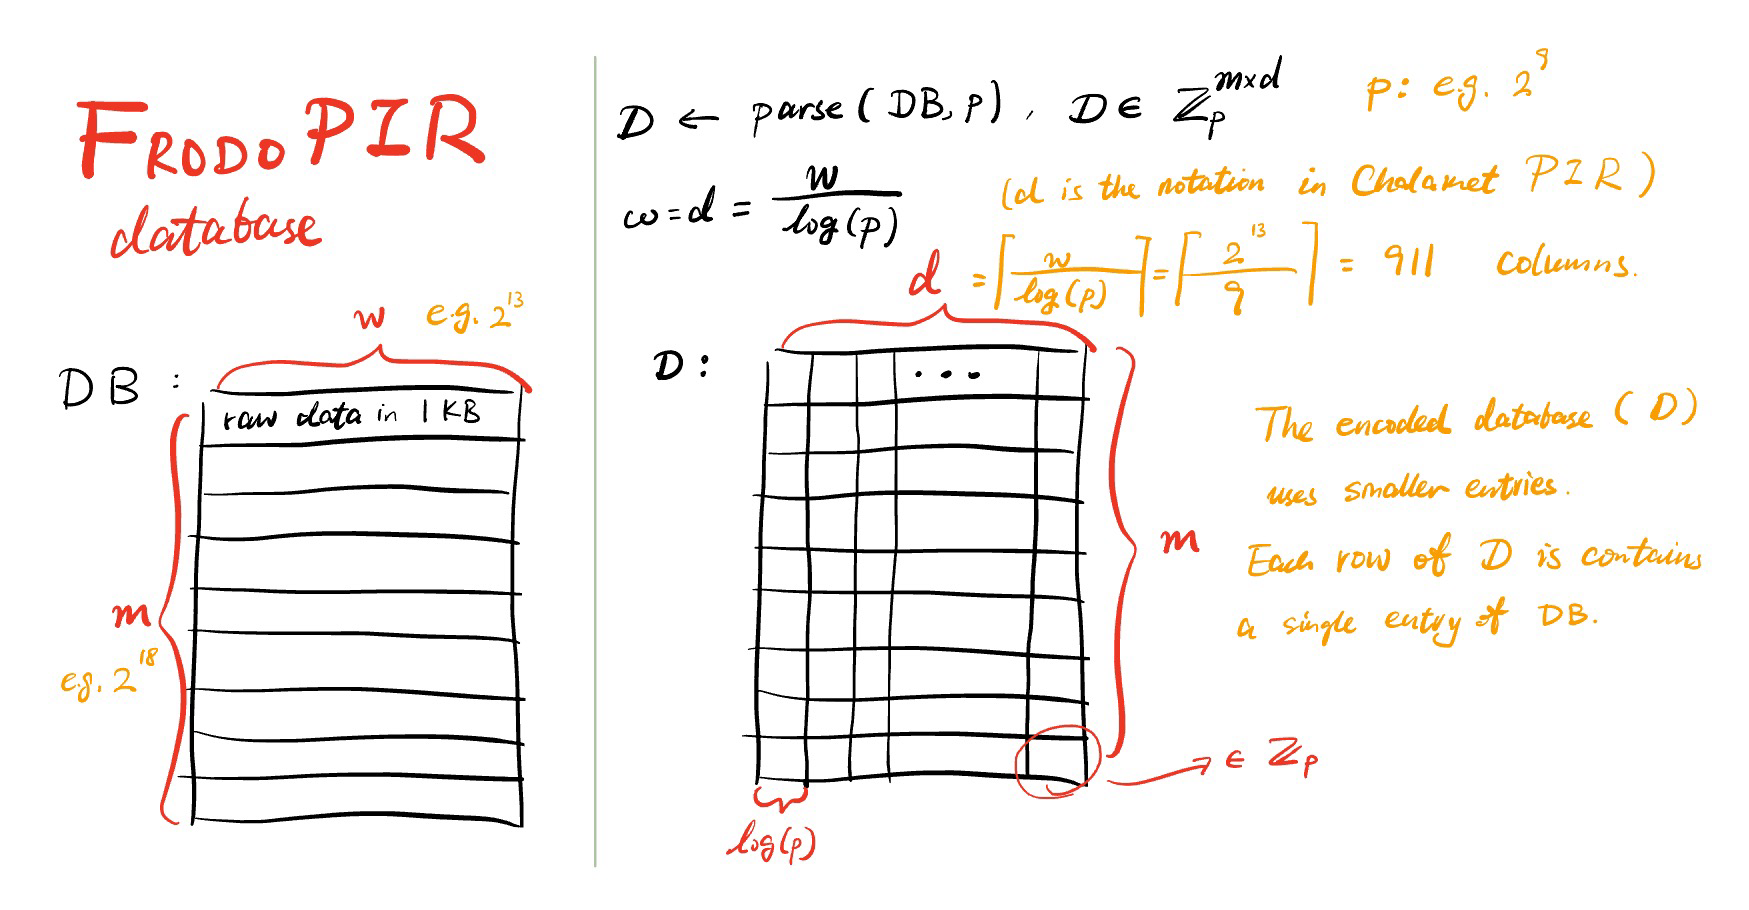 FRODO PIR
database
w e.g. 2^13
DB :
raw data in 1 KB
m
e.g. 2^18
D ← parse ( DB, p ) , D ∈ ℤ_p^{m×d}
p: e.g. 2^9
ω = d = w / log(p)
(d is the notation in Chalamet PIR )
d = ⌈ w / log(p) ⌉ = ⌈ 2^13 / 9 ⌉ = 911 columns.
D :
...
m
The encoded database ( D )
uses smaller entries.
Each row of D is contains
a single entry of DB.
→ ∈ ℤ_p
log(p)